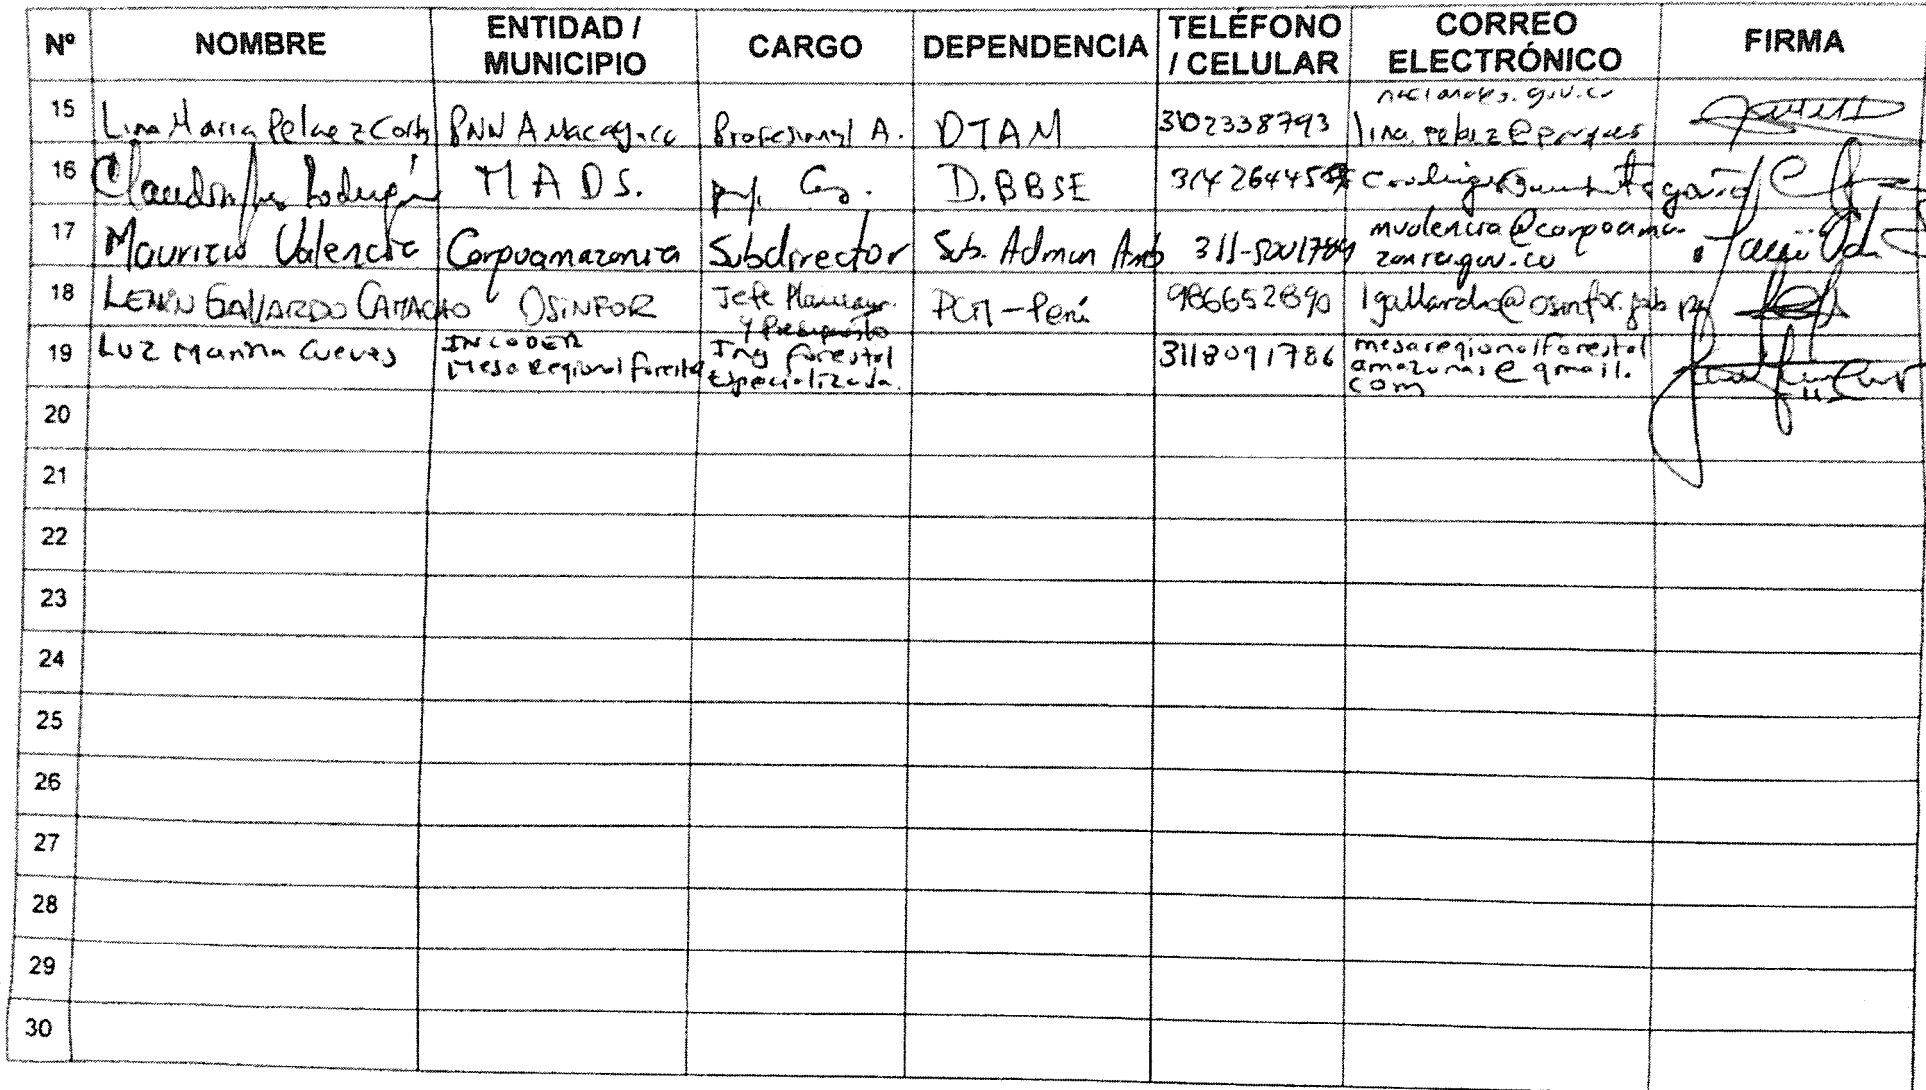 Nº NOMBRE ENTIDAD / MUNICIPIO CARGO DEPENDENCIA TELÉFONO / CELULAR CORREO ELECTRÓNICO FIRMA
15 Lina Maria Pelaez Cortes PNN Amacayacu Profesional A. DTAM 3102338793 lina.pelaez@parques nacionales.gov.co
16 Rodriguez M A D S. D.BBSE
17 Mauricio Valencia Corpoamazonia Subdirector Sub. Admon Amb mvalencia@corpoama zonia.gov.co
18 LENIN GALLARDO CAMACHO OSINFOR Jefe Planeam. y Presupuesto PCM-Perú 986652890 lgallardo@osinfor.gob.pe
19 Luz Marina Cuevas INCODER Mesa Regional Forestal Ing Forestal Especializada. 3118091786 mesaregionalforestal amazonas@gmail. com
20
21
22
23
24
25
26
27
28
29
30